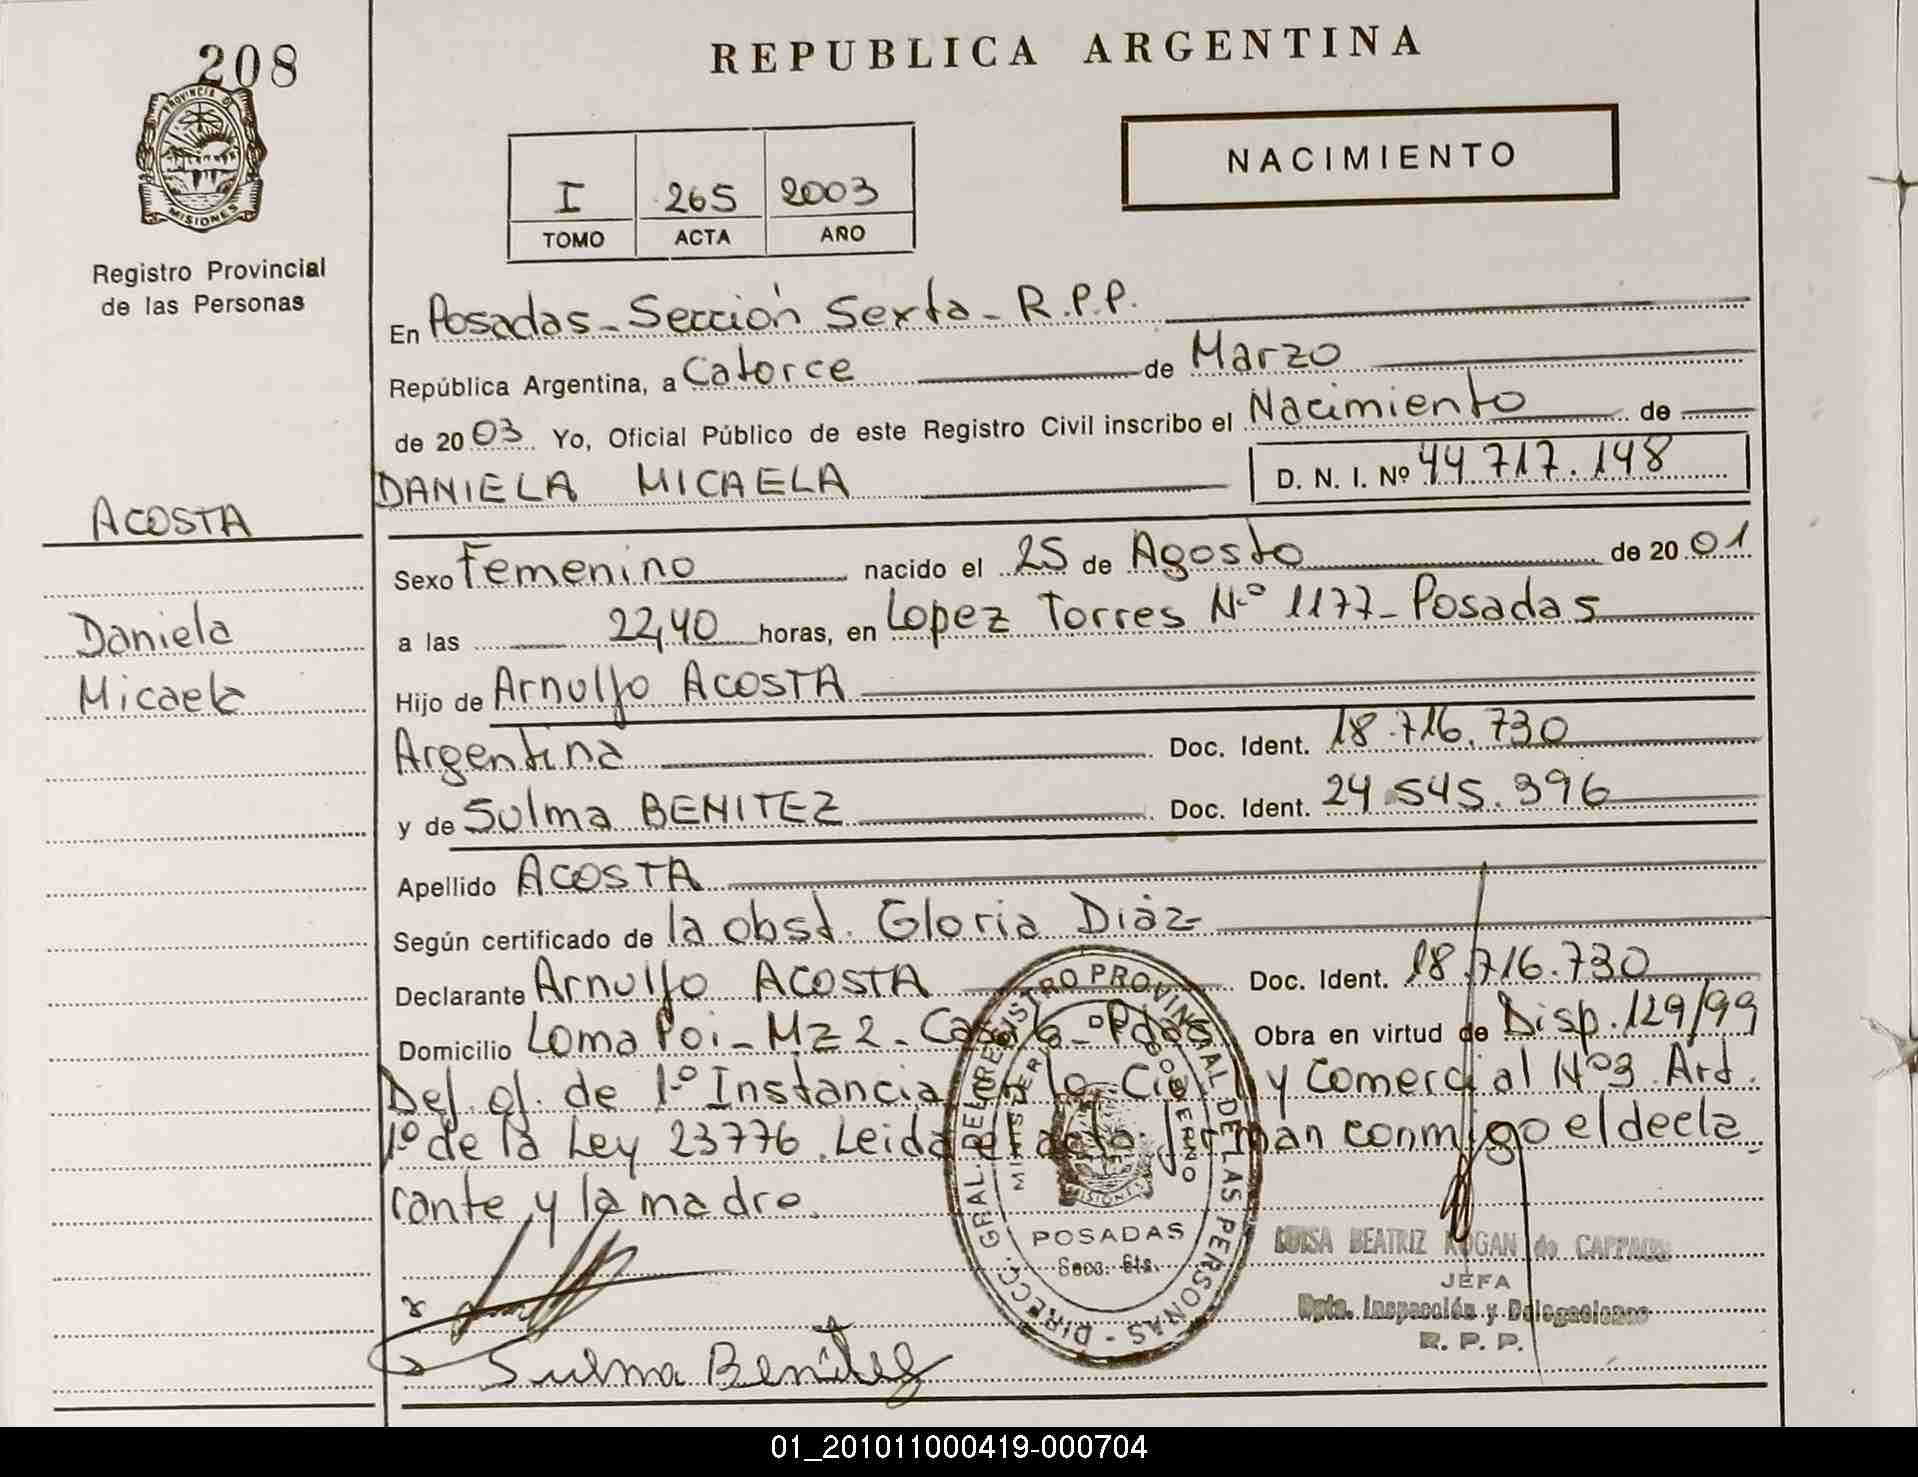 208
REPUBLICA ARGENTINA
PROVINCIA DE
MISIONES
Registro Provincial
de las Personas
I 265 2003
TOMO ACTA AÑO
NACIMIENTO
En Posadas - Sección Sexta - R.P.P.
República Argentina, a Catorce de Marzo
de 2003 Yo, Oficial Público de este Registro Civil inscribo el Nacimiento de
DANIELA MICAELA D. N. I. Nº 44.717.148
ACOSTA
Daniela
Micaela
Sexo Femenino nacido el 25 de Agosto de 2001
a las 22,40 horas, en Lopez Torres N.º 1177 - Posadas
Hijo de Arnulfo ACOSTA
Argentina Doc. Ident. 18.716.730
y de Sulma BENITEZ Doc. Ident. 24.545.396
Apellido ACOSTA
Según certificado de la obst. Gloria Diáz
Declarante Arnulfo ACOSTA Doc. Ident. 18.716.730
Domicilio Loma Poi - Mz 2 - Casa 6 - Pdas Obra en virtud de Disp. 129/99
Def. of. de 1.º Instancia en lo Civil y Comercial Nº 3. Art.
1º de la Ley 23776. Leida el acta firman conmigo el decla
rante y la madre.
DIRECC. GRAL. DEL REGISTRO PROVINCIAL DE LAS PERSONAS -
MINISTERIO GOBIERNO
MISIONES
POSADAS
Secc. 6ta.
LUISA BEATRIZ KOGAN de
JEFA
Dpto. Inspección y Delegaciones
R. P. P.
Sulma Benítez
01_201011000419-000704